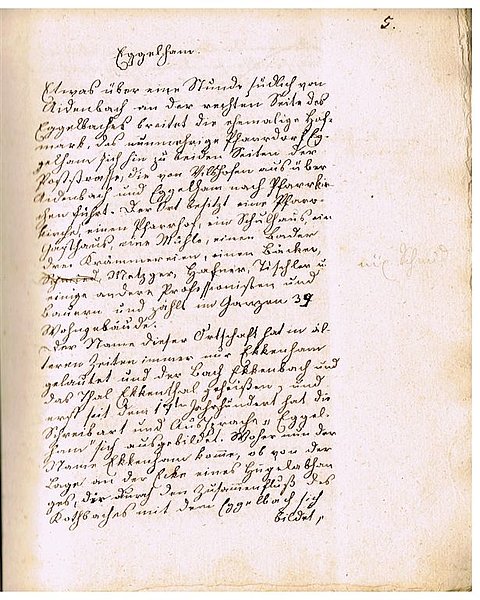 5.
Eggelham.
Etwas über eine Stunde südlich von
Aidenbach an der rechten Seite des
Eggelbaches breitet die ehemalige Hof-
mark, das nunmehrige Pfarrdorf Eg-
gelham sich hin zu beiden Seiten der
Poststrasse, die von Vilshofen aus über
Aidenbach und Eggelham nach Pfarrkir-
chen führt. Der Ort besitzt eine Pfarr-
kirche, einen Pfarrhof, ein Schulhaus, ein
Gasthaus, eine Mühle, einen Bader
drei Krämmereien, einen Bäcker,
Schmied, Metzger, Hafner, Tischler u.
einige andere Professionisten und
Bauern und zählt im Ganzen 39
Wohngebäude.
Der Name dieser Ortschaft hat in äl-
teren Zeiten immer nur Ekkenham
gelautet und der Bach Ekkenbach und
das Thal Ekkenthal geheißen, und
erst seit dem 17ten Jahrhundert hat die
Schreibart und Aussprache „Eggel-
ham" sich ausgebildet. Woher nun der
Name Ekkenham komme, ob von der
Lage an der Ecke eines Hügelabhan
ges, der durch den Zusammenfluß des
Rothbaches mit dem Eggelbach sich
bildet,